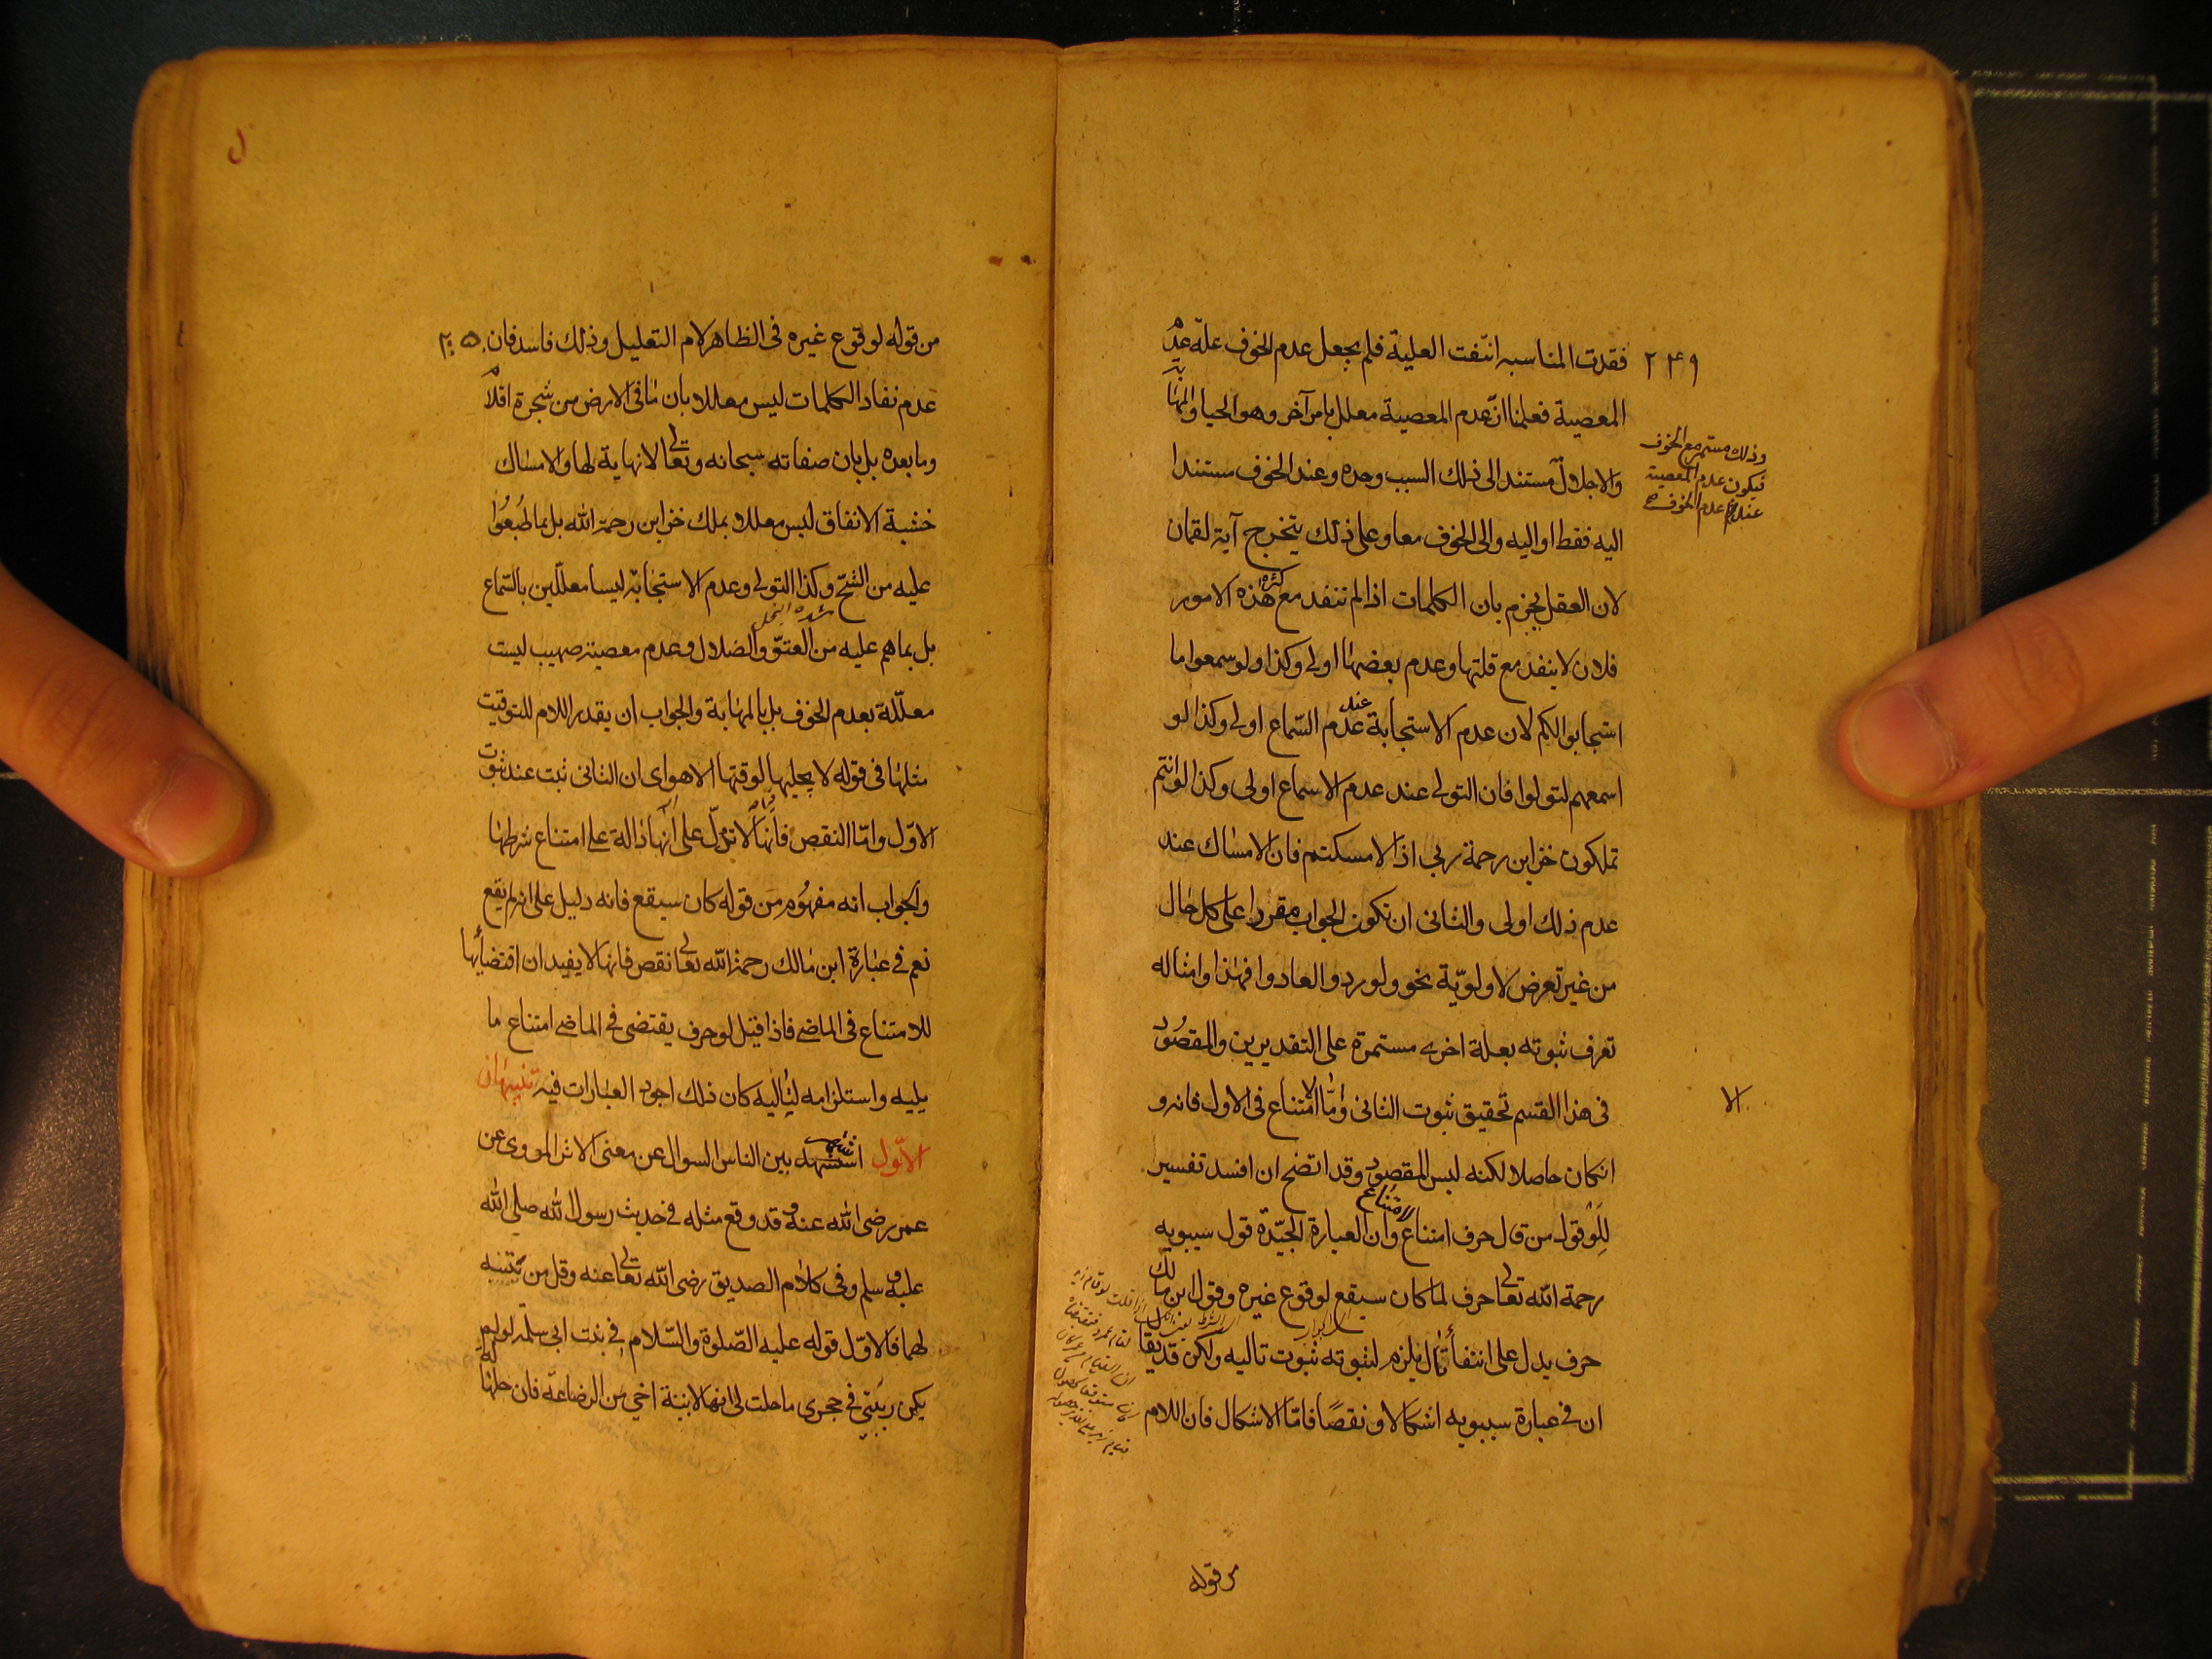 ٢٤٩ فقدت المناسبه انتفت العلية فلم يجعل عدم الخوف علة عدم
المعصية فعلمنا انّ عدم المعصية معلل بامر آخر وهو الحيا والمهابة
وذلك مستمر مع الخوف
فيكون عدم المعصية
عند عدم الخوف صح
والاجلال مستندا الى ذلك السبب وحده وعند الخوف مستندا
اليه فقط او اليه والى الخوف معا وعلى ذلك يتخرج آية لقمان
لان العقل يجزم بان الكلمات اذا لم تنفد مع كثرة هذه الامور
فلان لا ينفد مع قلتها وعدم بعضها اولى وكذا ولو سمعوا ما
استجابوا لكم لان عدم الاستجابة عند عدم السّماع اولى وكذا لو
اسمعهم لتولوا فان التولى عند عدم الاسماع اولى وكذا لو انتم
تملكون خزاين رحمة ربى اذا لامسكتم فان الامساك عند
عدم ذلك اولى والثانى ان تكون الجواب مقررا على كل حال
من غير تعرض لاولويّة نحو ولو ردوا لعادوا فهذا وامثاله
تعرف ثبوته بعلة اخرى مستمرة على التقديرين والمقصود
فى هذا القسم تحقيق ثبوت الثانى وامّا الامتناع فى الاول فانه و
الا
انكان حاصلا لكنه ليس المقصود وقد اتضح ان افسد تفسير
لِلَوْ قول من قال حرف امتناع لامتناع وان العبارة الجيّدة قول سيبويه
رحمة الله تعالى حرف لما كان سيقع لوقوع غيره وقول ابن مالك
حرف يدل على انتفاء تال يلزم لثبوته ثبوت تاليه ولكن قد يقال
ان فى عبارة سيبويه اشكالا ونقصًا فامّا الاشكال فان اللام
من قوله
ل
من قوله لوقوع غيره فى الظاهر لام التعليل وذلك فاسد فان ٢٥٠
عدم نفاد الكلمات ليس معللا بان ما فى الارض من شجرة اقلام
وما بعده بل بان صفاته سبحانه وتعالى لا نهاية لها والامساك
خشية الانفاق ليس معللا بملك خزاين رحمة الله بل بما طُبُعوا
عليه من الشحّ وكذا التولى وعدم الاستجابة ليسا معللين بالسّماع
شدة البخل
بل بما هم عليه من العتوّ والضلال وعدم معصية صهيب ليست
معلّلة بعدم الخوف بل بالمهابة والجواب ان يقدر اللام للتوقيت
مثلها فى قوله لا يجليها لوقتها الا هو اى ان الثانى ثبت عند ثبوت
الاوّل وامّا النقص فانها لا تدلّ على انها دالة على امتناع شرطها
والجواب انه مفهوم من قوله كان سيقع فانه دليل على انه لم يقع
نعم فى عبارة ابن مالك رحمة الله تعالى نقص فانها لا يفيد ان اقتضائها
للامتناع فى الماضى فاذا قيل لو حرف يقتضى فى الماضى امتناع ما
يليه واستلزامه لتاليه كان ذلك اجود العبارات فيه تنبيهان
الاوّل اشتهر بين الناس السوال عن معنى الاثر المروى عن
عمر رضى الله عنه وقد وقع مثله فى حديث رسول الله صلى الله
عليه وسلم وفى كلام الصديق رضى الله تعالى عنه وقل من يتنبه
لهما فالاوّل قوله عليه الصّلوة والسّلام فى بنت ابى سلمة لو لم
يكن ربيبتى فى حجرى ما حلت لى انها لابنة اخى من الرضاعة فان حلها